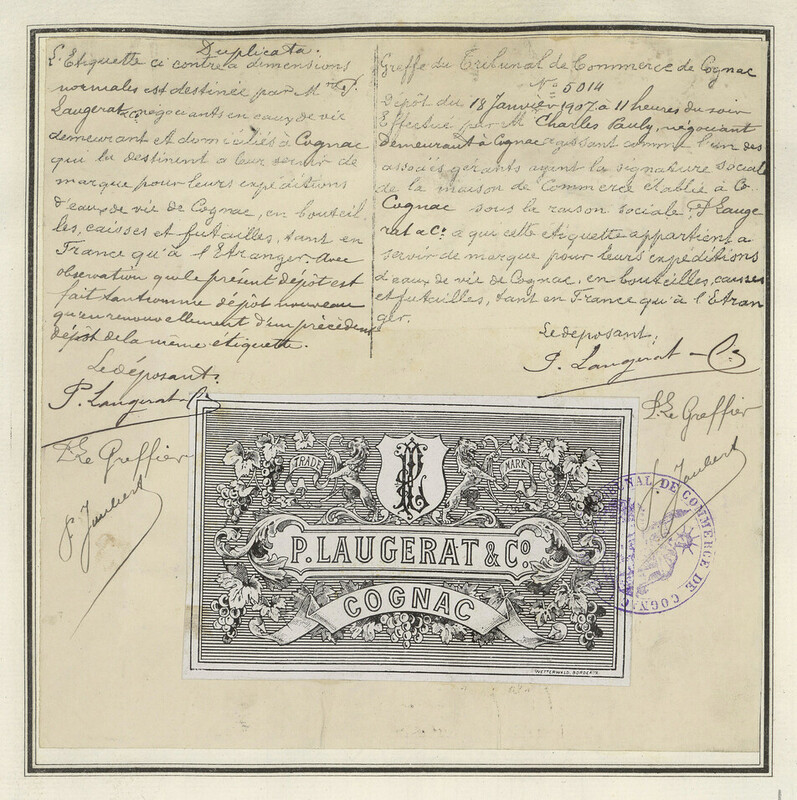 Duplicata.
L'Etiquette ci contre a dimensions
normales est destinée par M P.
Laugerat & Co négociants en eaux de vie
demeurant et domiciliés à Cognac
qui la destinent a leur servir de
marque pour leurs expéditions
d'eaux de vie de Cognac, en bouteil
les, caisses et futailles, tant en
France qu'à l'Etranger. Avec
observation que le présent dépôt est
fait tant comme dépôt nouveau
qu'en renouvellement d'un précédent
dépôt de la même étiquette.
Le déposant:
P. Laugerat & Co
Le Greffier
Greffe du Tribunal de Commerce de Cognac
No 5014
Dépôt du 18 Janvier 1907 à 11 heures du soir
Effectué par M Charles Pauly, négociant
demeurant à Cognac agissant comme l'un des
associés gérants ayant la signature sociale
de la maison de Commerce établie à Co
Cognac sous la raison sociale P Lauge
rat & Co a qui cette étiquette appartient a
servir de marque pour leurs expéditions
d'eaux de vie de Cognac, en bouteilles, caisses
et futailles, tant en France qu'à l'Etran
ger.
Le déposant;
P. Laugerat & Co
Le Greffier
TRADE MARK
P. LAUGERAT & Co.
COGNAC
WETTERWALD, BORDEAUX
TRIBUNAL DE COMMERCE DE COGNAC